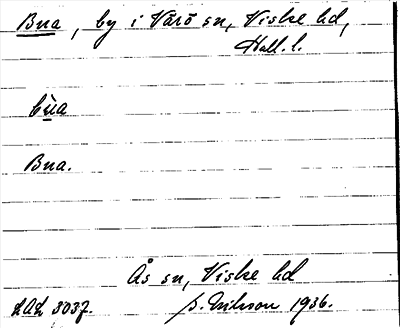 Bua, by i Värö sn, Viske hd,
Hall. l.
bùa
Bua.
Ås sn, Viske hd
1936.